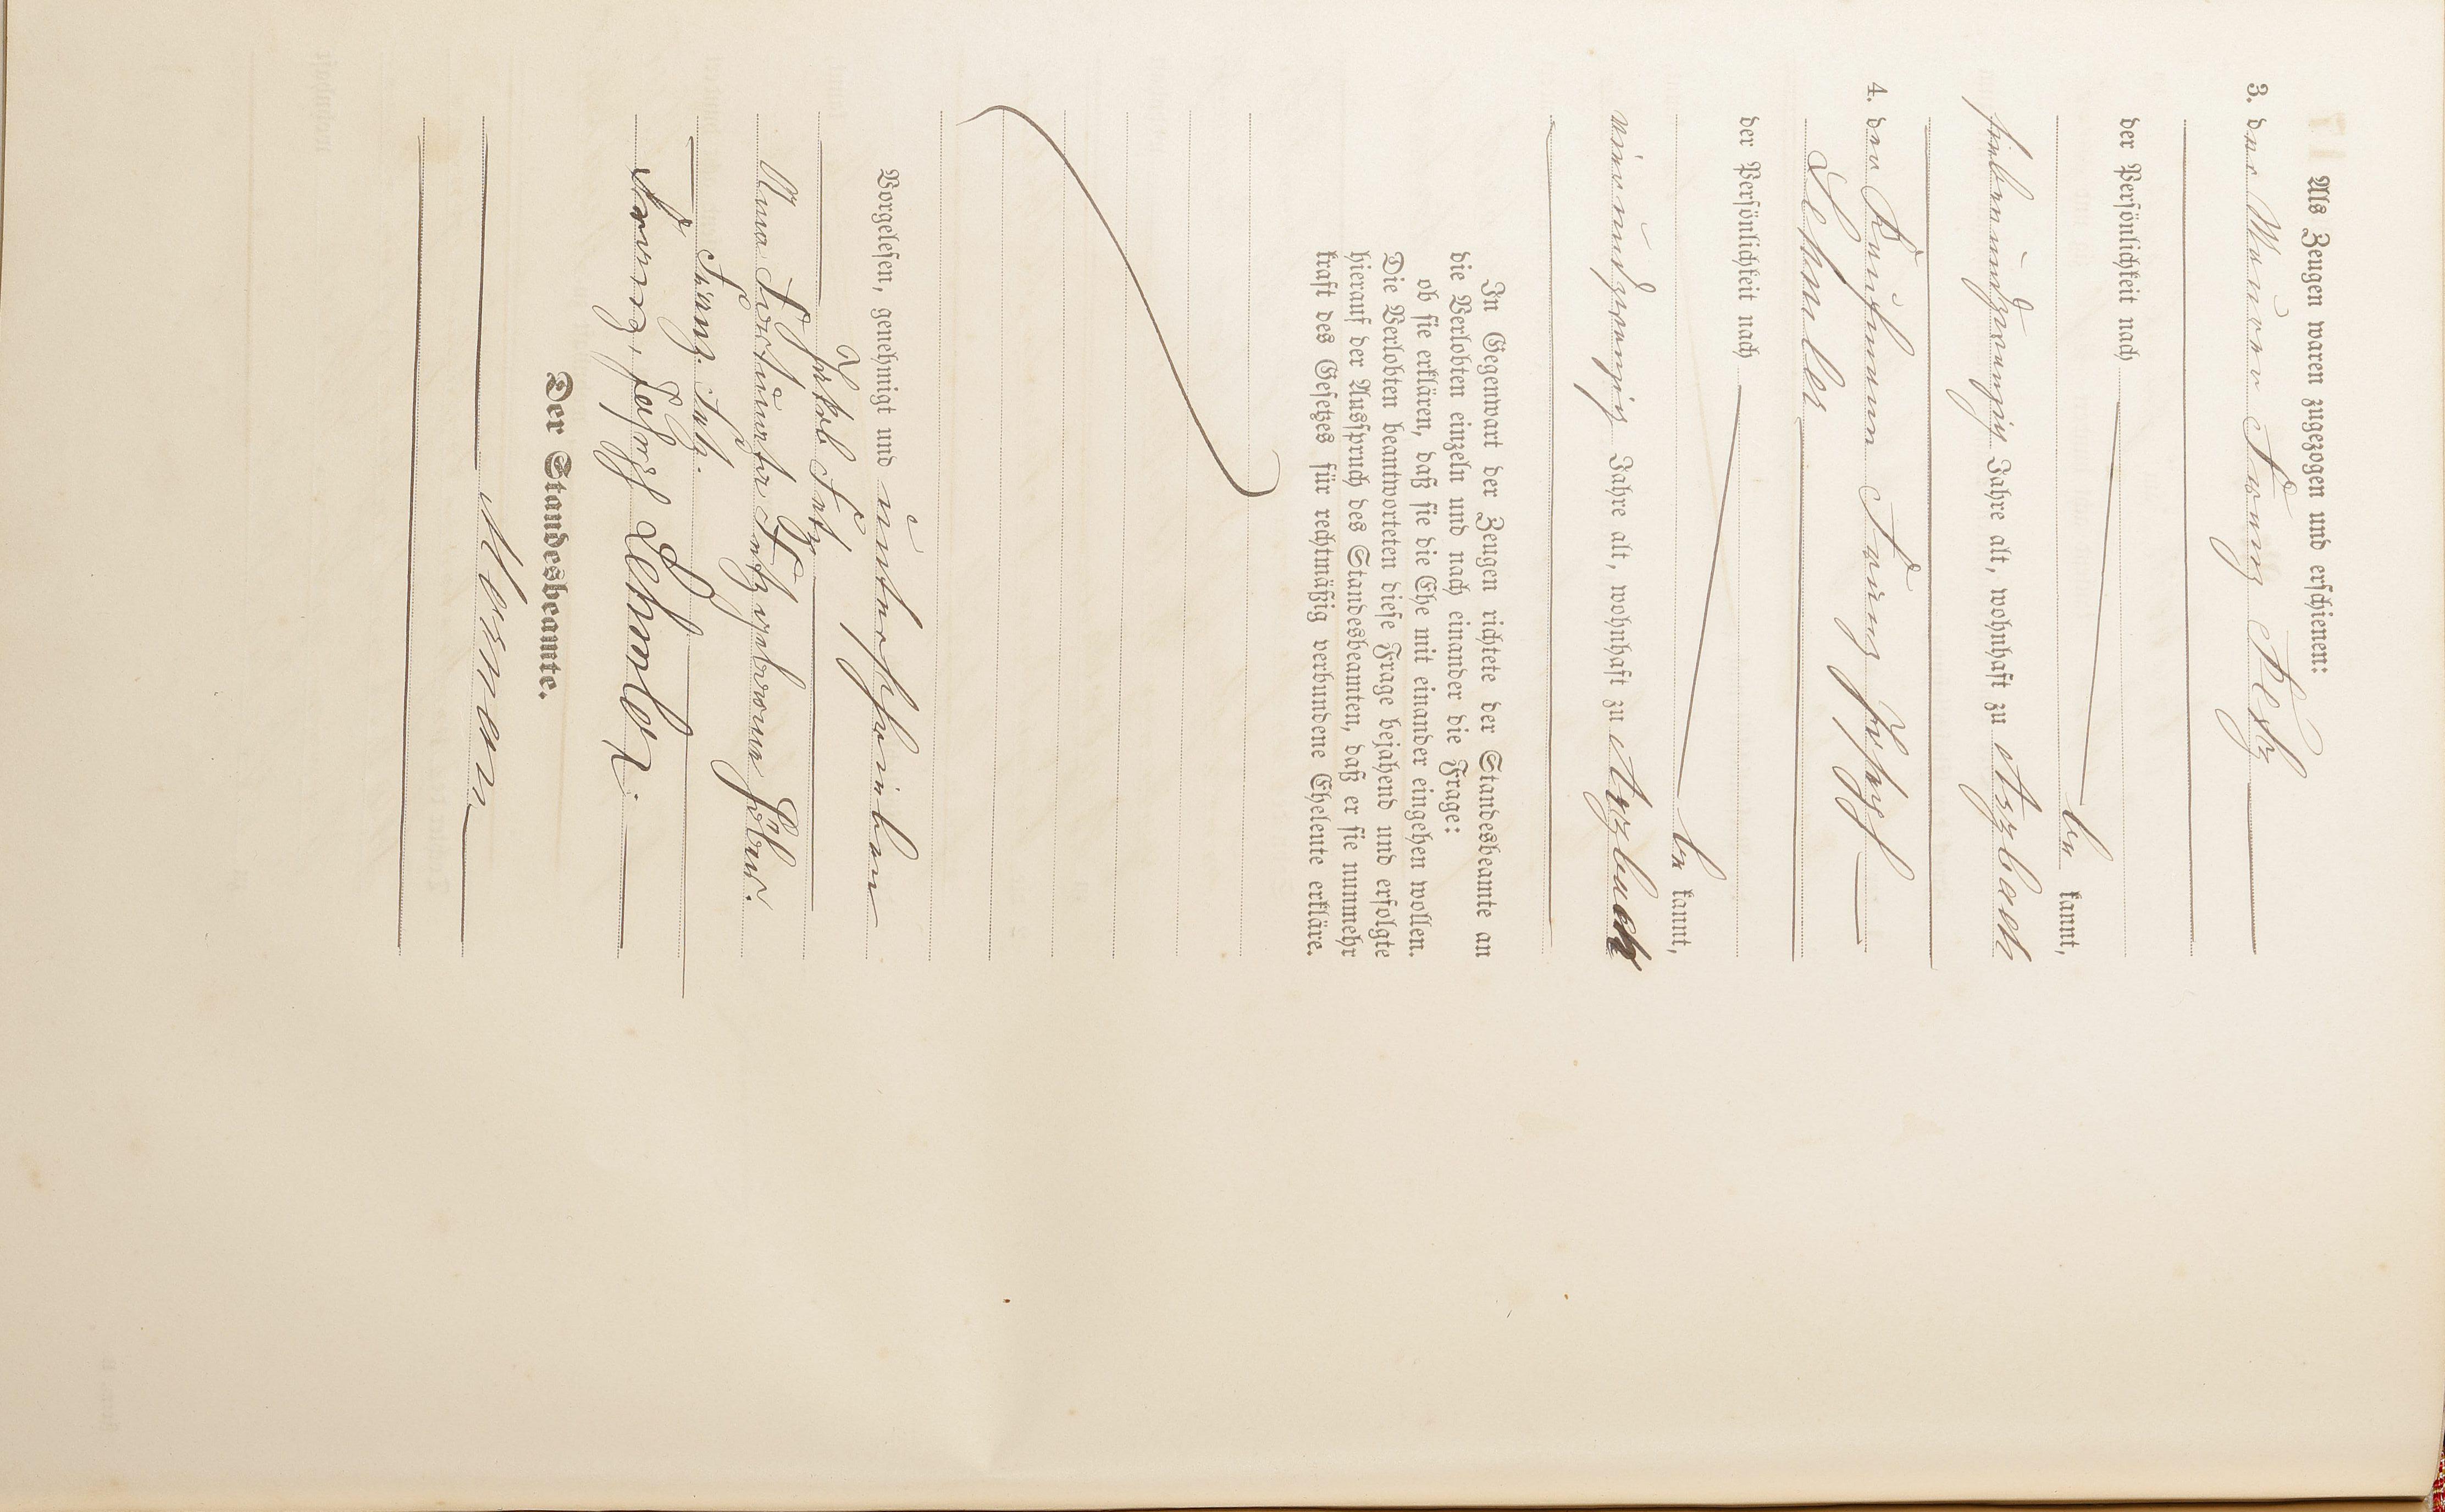 Als Zeugen waren zugezogen und erschienen:
3. der Maurer Franz
der Persönlichkeit nach
be kannt,
siebenundzwanzig Jahre alt, wohnhaft zu Arzbach
4. der Kaufmann Franz Joseph
Lehmler
der Persönlichkeit nach
be kannt,
vierundzwanzig Jahre alt, wohnhaft zu Arzbach
In Gegenwart der Zeugen richtete der Standesbeamte an
die Verlobten einzeln und nach einander die Frage:
ob sie erklären, daß sie die Ehe mit einander eingehen wollen.
Die Verlobten beantworteten diese Frage bejahend und erfolgte
hierauf der Ausspruch des Standesbeamten, daß er sie nunmehr
kraft des Gesetzes für rechtmäßig verbundene Eheleute erkläre.
Vorgelesen, genehmigt und unterschrieben
Jakob
Anna geborene
Franz
Franz, Joseph Lehmler.
Der Standesbeamte.